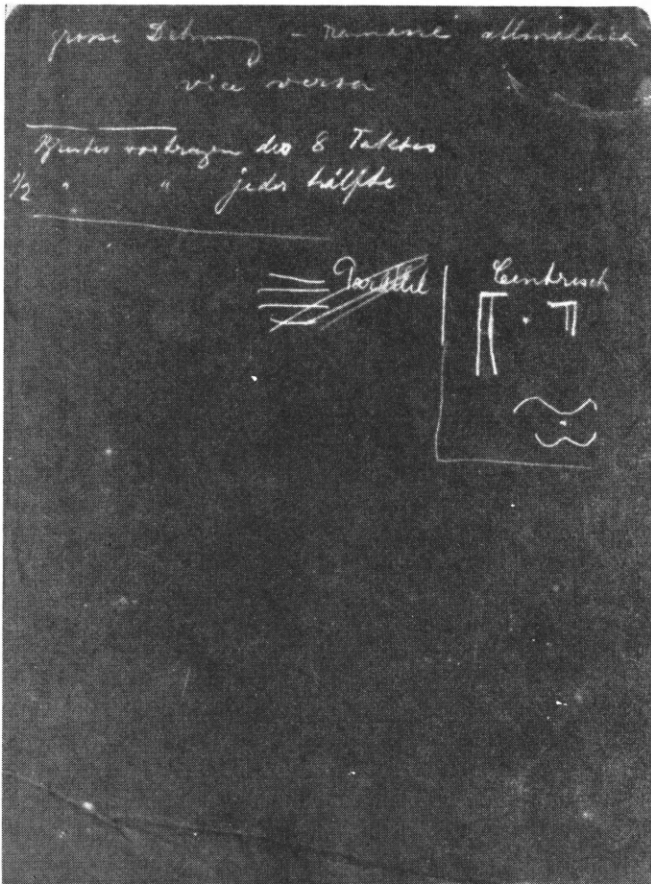 grosse Dehnung - allmählich
vice versa
vortragen des 8 Taktes
1/2 " " jeder hälfte
Parallel
Centrisch